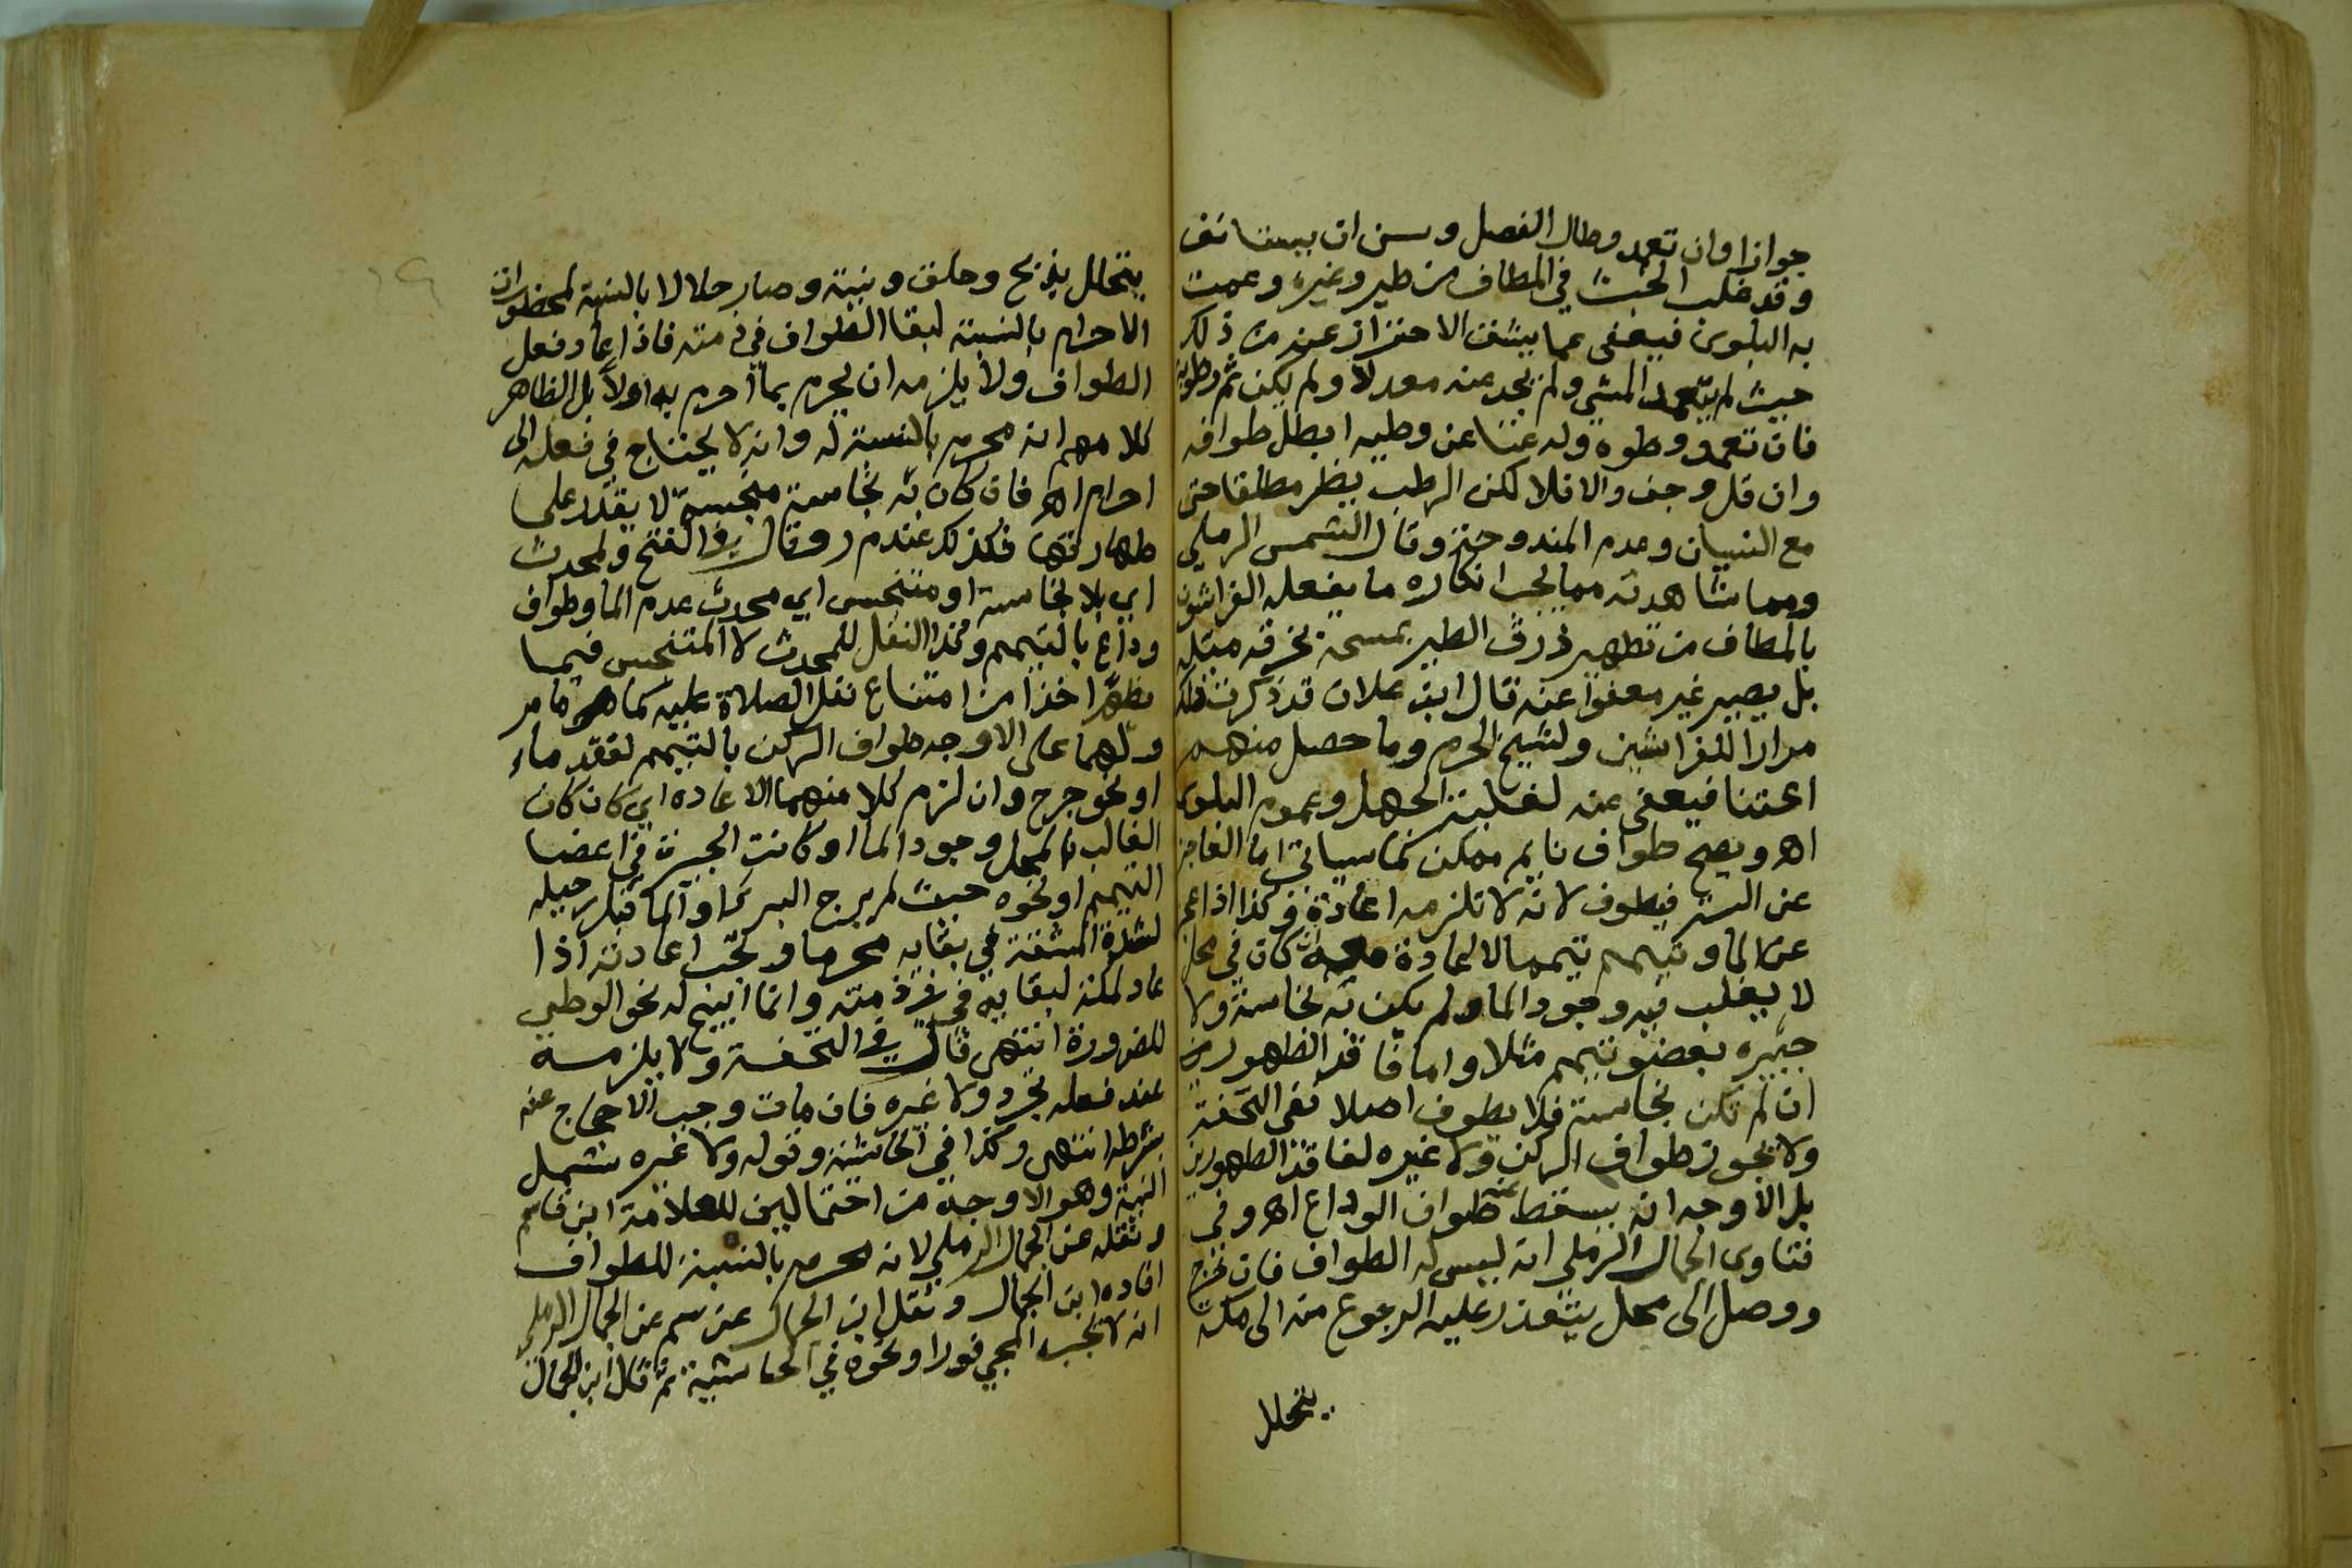 جوازا وان تعمد وطال الفصل وسن ان يستانف
وقد غلب الخبث في المطاف من طير وغيره وعمت
به البلوى فيعفى عما يشق الاحتراز عنه من ذلك
حيث لم يتعمد المشي ولم يجد عنه معدلا ولم يكن ثم رطوبة
فان تعمد وطوه وله غنا عن وطيه ابطل طوافه
وان قل وجف والا فلا لكن الرطب يضر مطلقا حتى
مع النسيان وعدم المندوحة وقال الشمس الرملي
ومما شاهدته مما يجب انكاره ما يفعله الفراشون
بالمطاف من تطهير ذرق الطير بمسحه بخرقه مبتله
بل يصير غير معفوا عنه قال ابن علان قد ذكرت ذلك
مرارا للفراشين ولشيخ الحرم وما حصل منهم
اعتنا فيعفى عنه لغلبة الجهل وعموم البلوى
اهـ ويصح طواف نايم ممكن كما سياتي اما العاجز
عن الستر فيطوف لانه لا تلزمه اعادة وكذا اذا عجز
عن الما وتيمم تيمما لا اعادة معه ان كان في محل
لا يغلب فيه وجود الما ولم يكن به نجاسة ولا
جبيره بعضو تيمم مثلا واما فاقد الطهورين
ان لم تكن نجاسة فلا يطوف اصلا ففي التحفة
ولا يجوز طواف الركن ولا غيره لفاقد الطهورين
بل الاوجه انه يسقط عنه طواف الوداع اهـ وفي
فتاوى الجمال الرملي انه ليس له الطواف فان خرج
ووصل الى محل يتعذر عليه الرجوع منه الى مكة
يتحلل
يتحلل بذبح وحلق ونية وصار حلالا بالنسبة لمحظورات
الاحرام بالنسبة لبقا الطواف في ذمته فاذا عاد فعل
الطواف ولا يلزمه ان يحرم بما احرم به اولا بل الظاهر
كلامهم انه محرم بالنسبة له وانه لا يحتاج في فعله الى
احرام اهـ فان كان به نجاسة منجسة لا يقدر على
طهارتها فكذلك عند م ر وقال في الفتح ولمحدث
اي بلا نجاسة او متنجس اي محدث عدم الما وطواف
وداع بالتيمم وكذا النفل للمحدث لا المتنجس فيما
يظهر اخذا من امتناع نفل الصلاة عليه كما هو ما مر
ولهما على الاوجه طواف الركن بالتيمم لفقد ماء
او نحو جرح وان لزم كلا منهما الاعاده اي كان كان
الغالب بالمحل وجود الما او كانت الجبيرة في اعضا
التيمم او نحوه حيث لم يرج البر او الما قبل رحيله
لشدة المشقة في بقايه محرما وتجب اعادته اذا
عاد لمكة لبقايه في ذمته وانما ابيح له نحو الوطي
للضرورة انتهى قال في التحفة ولا يلزمه
عند فعله تجرد ولا غيره فان مات وجب الاحجاج عنه
بشرطه انتهى وكذا في الحاشية وقوله ولا غيره يشمل
النية وهو الاوجه من احتمالين للعلامة ابن قاسم
ونقله عن الجمال الرملي لانه محرم بالنسبة للطواف
افاده ابن الجمال ونقل ابن الجمال عن سم عن الجمال الرملي
انه لا تجب المجي فورا ونحوه في الحاشية ثم قال ابن الجمال